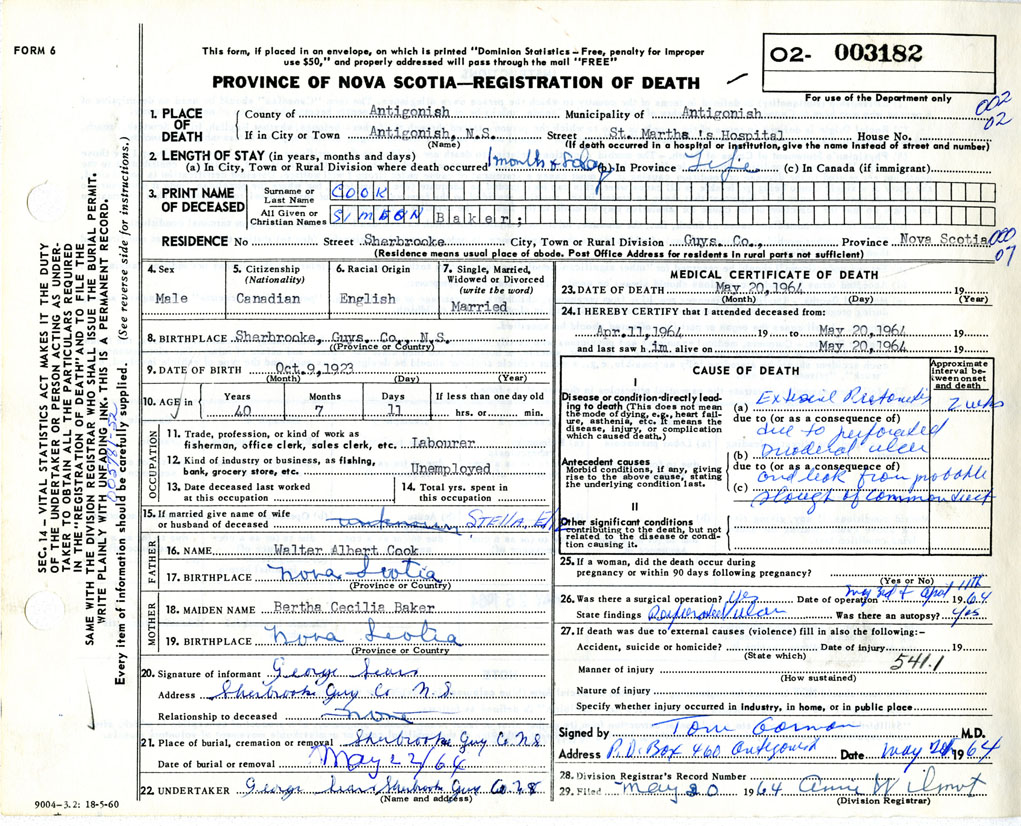 FORM 6
This form, if placed in an envelope, on which is printed "Dominion Statistics – Free, penalty for improper
use $50," and properly addressed will pass through the mail "FREE"
PROVINCE OF NOVA SCOTIA—REGISTRATION OF DEATH
02- 003182
For use of the Department only
002
02
1. PLACE OF DEATH
County of Antigonish Municipality of Antigonish
If in City or Town Antigonish, N.S. Street St. Martha's Hospital House No.
(Name) (If death occurred in a hospital or institution, give the name instead of street and number)
2. LENGTH OF STAY (in years, months and days)
(a) In City, Town or Rural Division where death occurred 1 months (b) In Province Life (c) In Canada (if immigrant)
3. PRINT NAME OF DECEASED
Surname or Last Name COOK
All Given or Christian Names SIMEON Baker;
RESIDENCE No Street Sherbrooke City, Town or Rural Division Guys. Co., Province Nova Scotia
(Residence means usual place of abode. Post Office Address for residents in rural parts not sufficient)
000
07
4. Sex Male
5. Citizenship (Nationality) Canadian
6. Racial Origin English
7. Single, Married, Widowed or Divorced (write the word) Married
8. BIRTHPLACE Sherbrooke, Guys. Co., N.S.
(Province or Country)
9. DATE OF BIRTH Oct. 9, 1923
(Month) (Day) (Year)
10. AGE in Years 40 Months 7 Days 11 If less than one day old hrs. or min.
OCCUPATION
11. Trade, profession, or kind of work as fisherman, office clerk, sales clerk, etc. Labourer
12. Kind of industry or business, as fishing, bank, grocery store, etc. Unemployed
13. Date deceased last worked at this occupation
14. Total yrs. spent in this occupation
15. If married give name of wife or husband of deceased unknown STELLA
FATHER
16. NAME Walter Albert Cook
17. BIRTHPLACE Nova Scotia
(Province or Country)
MOTHER
18. MAIDEN NAME Bertha Cecilia Baker
19. BIRTHPLACE Nova Scotia
(Province or Country
20. Signature of informant George Sears
Address Sherbrooke Guy Co N.S.
Relationship to deceased none
21. Place of burial, cremation or removal Sherbrooke Guy Co N.S
Date of burial or removal May 22/64
22. UNDERTAKER George Sears Sherbrooke Guy Co N S
(Name and address)
9004–3.2: 18-5-60
MEDICAL CERTIFICATE OF DEATH
23. DATE OF DEATH May 20, 1964 19
(Month) (Day) (Year)
24. I HEREBY CERTIFY that I attended deceased from:
Apr. 11, 1964 19 to May 20, 1964 19
and last saw h im. alive on May 20, 1964 19
CAUSE OF DEATH
Approximate interval between onset and death
I
Disease or condition directly leading to death (This does not mean the mode of dying, e.g., heart failure, asthenia, etc. It means the disease, injury, or complication which caused death.)
(a) 2 wks
due to (or as a consequence of)
due to perforated
(b) Duodenal ulcer
Antecedent causes
Morbid conditions, if any, giving rise to the above cause, stating the underlying condition last.
due to (or as a consequence of)
and leak from probable
(c) slough of common duct
II
Other significant conditions
contributing to the death, but not related to the disease or condition causing it.
25. If a woman, did the death occur during
pregnancy or within 90 days following pregnancy?
(Yes or No)
26. Was there a surgical operation? Yes Date of operation May 3rd & April 11th 1964
State findings Was there an autopsy? Yes
27. If death was due to external causes (violence) fill in also the following:–
Accident, suicide or homicide? Date of injury 19
(State which)
541.1
Manner of injury
(How sustained)
Nature of injury
Specify whether injury occurred in industry, in home, or in public place
Signed by Tom Gorman M.D.
Address P.O. Box 460 Antigonish Date May 1964
28. Division Registrar's Record Number
29. Filed May 20 1964 Annie Wilmot
(Division Registrar)
SEC. 14 – VITAL STATISTICS ACT MAKES IT THE DUTY
OF THE UNDERTAKER OR PERSON ACTING AS UNDERTAKER
TO OBTAIN ALL THE PARTICULARS REQUIRED
IN THE "REGISTRATION OF DEATH" AND TO FILE THE
SAME WITH THE DIVISION REGISTRAR WHO SHALL ISSUE THE BURIAL PERMIT.
WRITE PLAINLY WITH UNFADING INK. THIS IS A PERMANENT RECORD.
Every item of information should be carefully supplied. (See reverse side for instructions.)